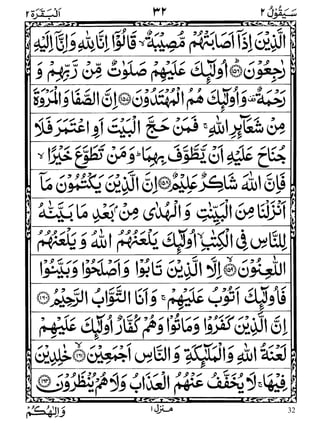 سَيَقُولُ ٢ ٣٢ اَلْبَقَرَة ٢
الَّذِيْنَ اِذَاۤ اَصَابَتْهُمْ مُّصِيْبَةٌ ۙ قَالُوْۤا اِنَّا لِلّٰهِ وَ اِنَّاۤ اِلَيْهِ
رٰجِعُوْنَ ؕ﴿۱۵۶﴾ اُولٰٓئِكَ عَلَيْهِمْ صَلَوٰتٌ مِّنْ رَّبِّهِمْ وَ
رَحْمَةٌ ۟ وَ اُولٰٓئِكَ هُمُ الْمُهْتَدُوْنَ ﴿۱۵۷﴾ اِنَّ الصَّفَا وَ الْمَرْوَةَ
مِنْ شَعَآئِرِ اللّٰهِ ۚ فَمَنْ حَجَّ الْبَيْتَ اَوِ اعْتَمَرَ فَلَا
جُنَاحَ عَلَيْهِ اَنْ يَّطَّوَّفَ بِهِمَا ؕ وَ مَنْ تَطَوَّعَ خَيْرًا ۙ
فَاِنَّ اللّٰهَ شَاكِرٌ عَلِيْمٌ ﴿۱۵۸﴾ اِنَّ الَّذِيْنَ يَكْتُمُوْنَ مَاۤ
اَنْزَلْنَا مِنَ الْبَيِّنٰتِ وَ الْهُدٰى مِنْۢ بَعْدِ مَا بَيَّنّٰهُ
لِلنَّاسِ فِي الْكِتٰبِ ۙ اُولٰٓئِكَ يَلْعَنُهُمُ اللّٰهُ وَ يَلْعَنُهُمُ
اللّٰعِنُوْنَ ۙ﴿۱۵۹﴾ اِلَّا الَّذِيْنَ تَابُوْا وَ اَصْلَحُوْا وَ بَيَّنُوْا
فَاُولٰٓئِكَ اَتُوْبُ عَلَيْهِمْ ۚ وَ اَنَا التَّوَّابُ الرَّحِيْمُ ﴿۱۶۰﴾
اِنَّ الَّذِيْنَ كَفَرُوْا وَ مَاتُوْا وَ هُمْ كُفَّارٌ اُولٰٓئِكَ عَلَيْهِمْ
لَعْنَةُ اللّٰهِ وَ الْمَلٰٓئِكَةِ وَ النَّاسِ اَجْمَعِيْنَ ۙ﴿۱۶۱﴾ خٰلِدِيْنَ
فِيْهَا ۚ لَا يُخَفَّفُ عَنْهُمُ الْعَذَابُ وَ لَا هُمْ يُنْظَرُوْنَ ﴿۱۶۲﴾
32 منزل ١ وَ اِلٰهُكُمْ